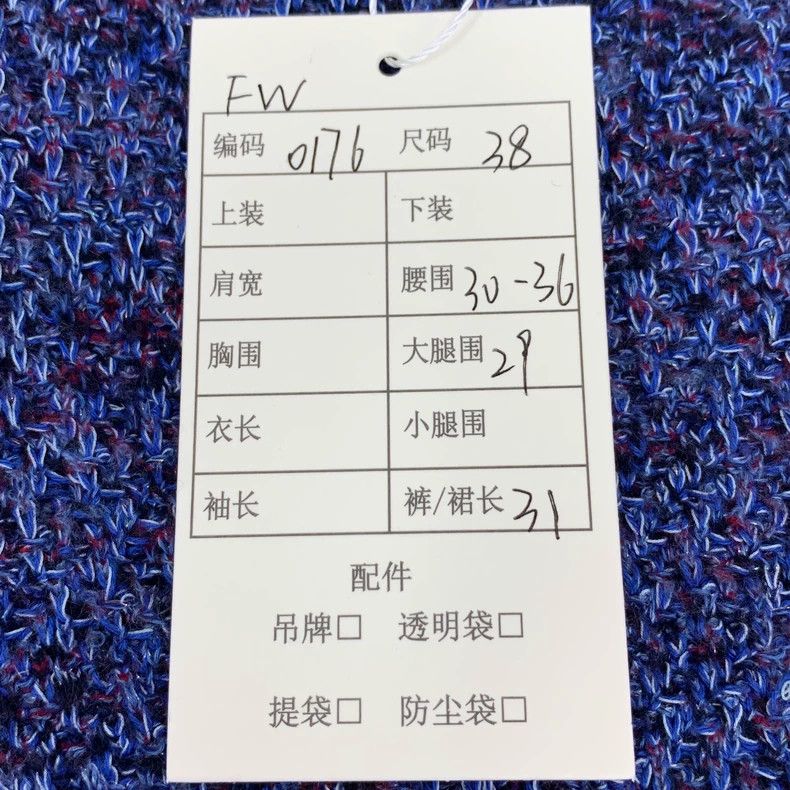 FW
编码 0176 尺码 38
上装 下装
肩宽 腰围 30-36
胸围 大腿围 29
衣长 小腿围
袖长 裤/裙长 31
配件
吊牌□ 透明袋□
提袋□ 防尘袋□